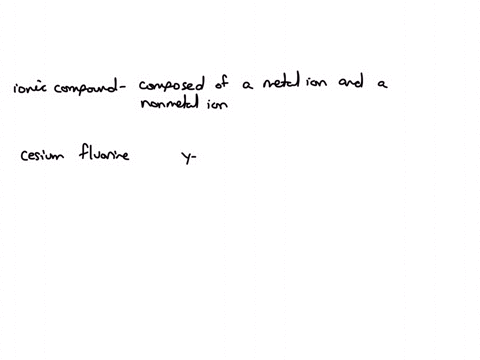 ionic compound- composed of a metal ion and a
nonmetal ion
cesium fluorine y-